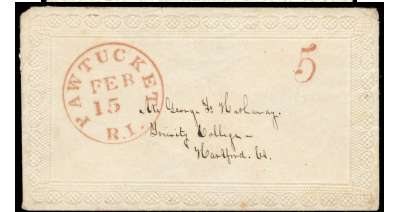 PAWTUCKET
FEB
15
R.I.
5
Mr George F. Hathaway.
Trinity College –
Hartford. Ct.